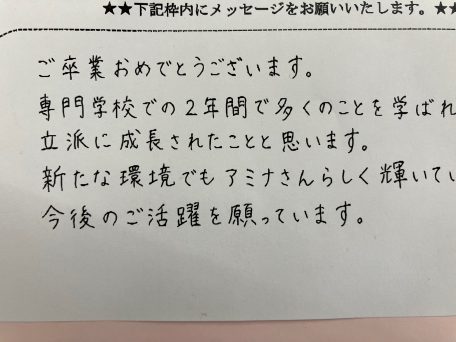 ★★下記枠内にメッセージをお願いいたします。★★
ご卒業おめでとうございます。
専門学校での2年間で多くのことを学ばれ
立派に成長されたことと思います。
新たな環境でもアミナさんらしく輝いてい
今後のご活躍を願っています。